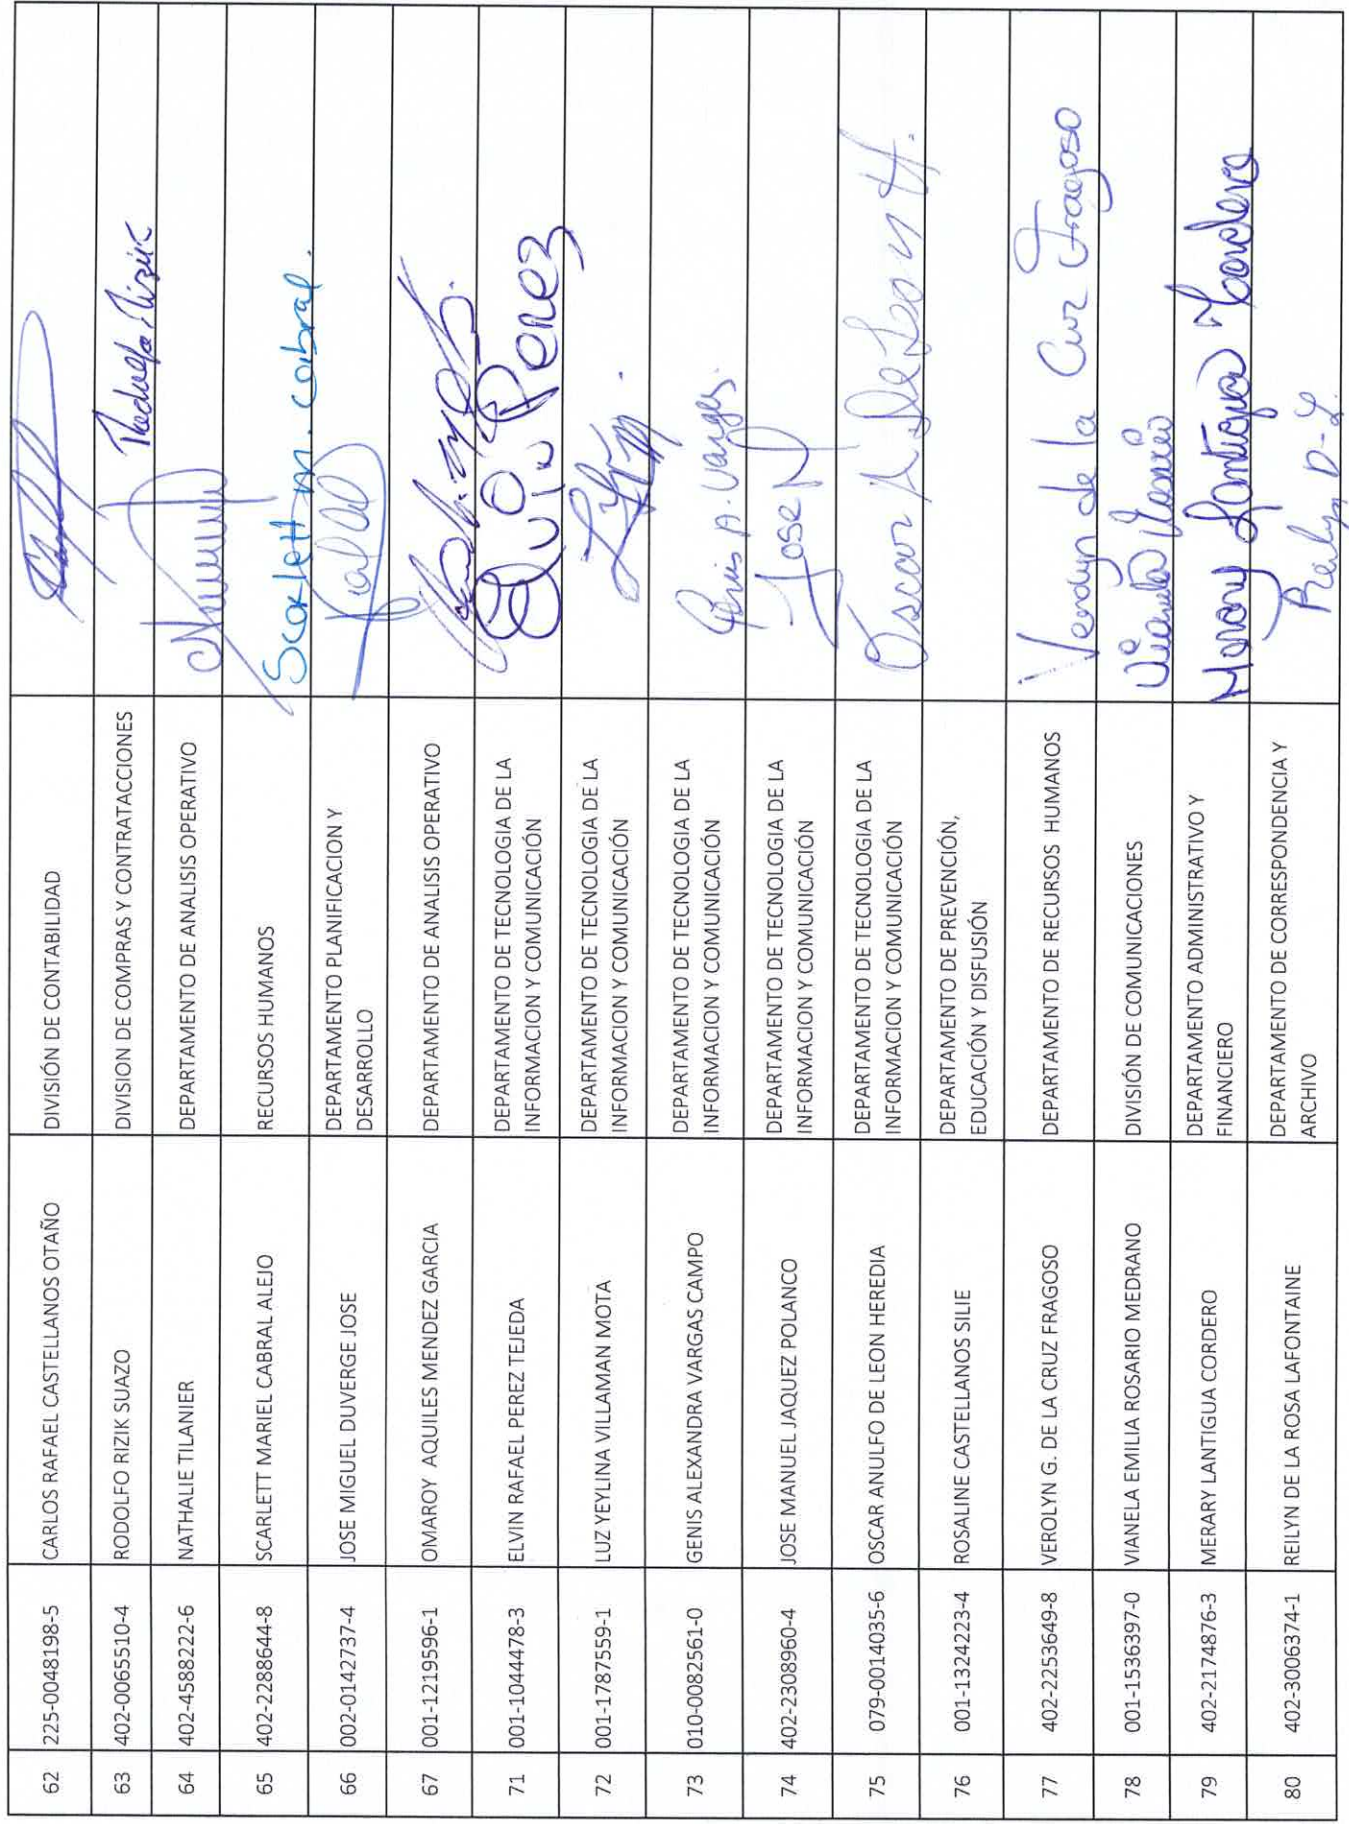 62 225-0048198-5 CARLOS RAFAEL CASTELLANOS OTAÑO DIVISIÓN DE CONTABILIDAD
63 402-0065510-4 RODOLFO RIZIK SUAZO DIVISION DE COMPRAS Y CONTRATACCIONES Rodolfo Rizik
64 402-4588222-6 NATHALIE TILANIER DEPARTAMENTO DE ANALISIS OPERATIVO
65 402-2288644-8 SCARLETT MARIEL CABRAL ALEJO RECURSOS HUMANOS Scarlett m. cabral.
66 002-0142737-4 JOSE MIGUEL DUVERGE JOSE DEPARTAMENTO PLANIFICACION Y
DESARROLLO
67 001-1219596-1 OMAROY AQUILES MENDEZ GARCIA DEPARTAMENTO DE ANALISIS OPERATIVO
71 001-1044478-3 ELVIN RAFAEL PEREZ TEJEDA DEPARTAMENTO DE TECNOLOGIA DE LA
INFORMACION Y COMUNICACIÓN Elvin Perez
72 001-1787559-1 LUZ YEYLINA VILLAMAN MOTA DEPARTAMENTO DE TECNOLOGIA DE LA
INFORMACION Y COMUNICACIÓN
73 010-0082561-0 GENIS ALEXANDRA VARGAS CAMPO DEPARTAMENTO DE TECNOLOGIA DE LA
INFORMACION Y COMUNICACIÓN Genis A. Vargas.
74 402-2308960-4 JOSE MANUEL JAQUEZ POLANCO DEPARTAMENTO DE TECNOLOGIA DE LA
INFORMACION Y COMUNICACIÓN Jose M
75 079-0014035-6 OSCAR ANULFO DE LEON HEREDIA DEPARTAMENTO DE TECNOLOGIA DE LA
INFORMACION Y COMUNICACIÓN Oscar A De Leon H.
76 001-1324223-4 ROSALINE CASTELLANOS SILIE DEPARTAMENTO DE PREVENCIÓN,
EDUCACIÓN Y DISFUSIÓN
77 402-2253649-8 VEROLYN G. DE LA CRUZ FRAGOSO DEPARTAMENTO DE RECURSOS HUMANOS Verolyn de la Cruz Fragoso
78 001-1536397-0 VIANELA EMILIA ROSARIO MEDRANO DIVISIÓN DE COMUNICACIONES Vianela Rosario
79 402-2174876-3 MERARY LANTIGUA CORDERO DEPARTAMENTO ADMINISTRATIVO Y
FINANCIERO Merary Lantigua Cordero
80 402-3006374-1 REILYN DE LA ROSA LAFONTAINE DEPARTAMENTO DE CORRESPONDENCIA Y
ARCHIVO Reilyn D-L